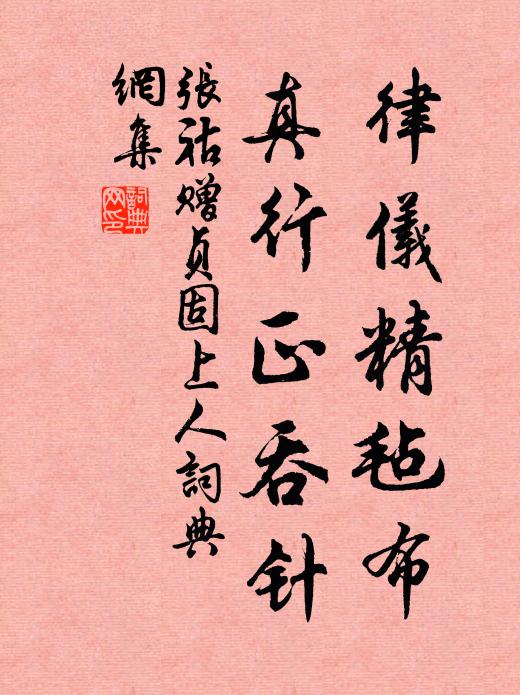 律儀精毡布
真行正吞针
張祜贈貞固上人詞典
網集
詞典网印